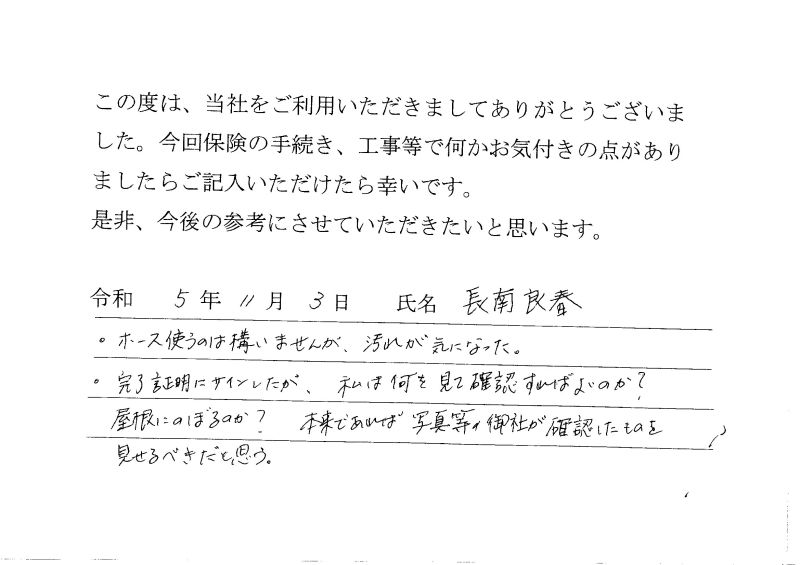 この度は、当社をご利用いただきましてありがとうございま
した。今回保険の手続き、工事等で何かお気付きの点があり
ましたらご記入いただけたら幸いです。
是非、今後の参考にさせていただきたいと思います。
令和 5年 11月 3日 氏名 長南良春
・ホース使うのは構いませんが、汚れが気になった。
・完了証明にサインしたが、私は何を見て確認すればよいのか?
屋根にのぼるのか? 本来であれば写真等 御社が確認したものを
見せるべきだと思う。